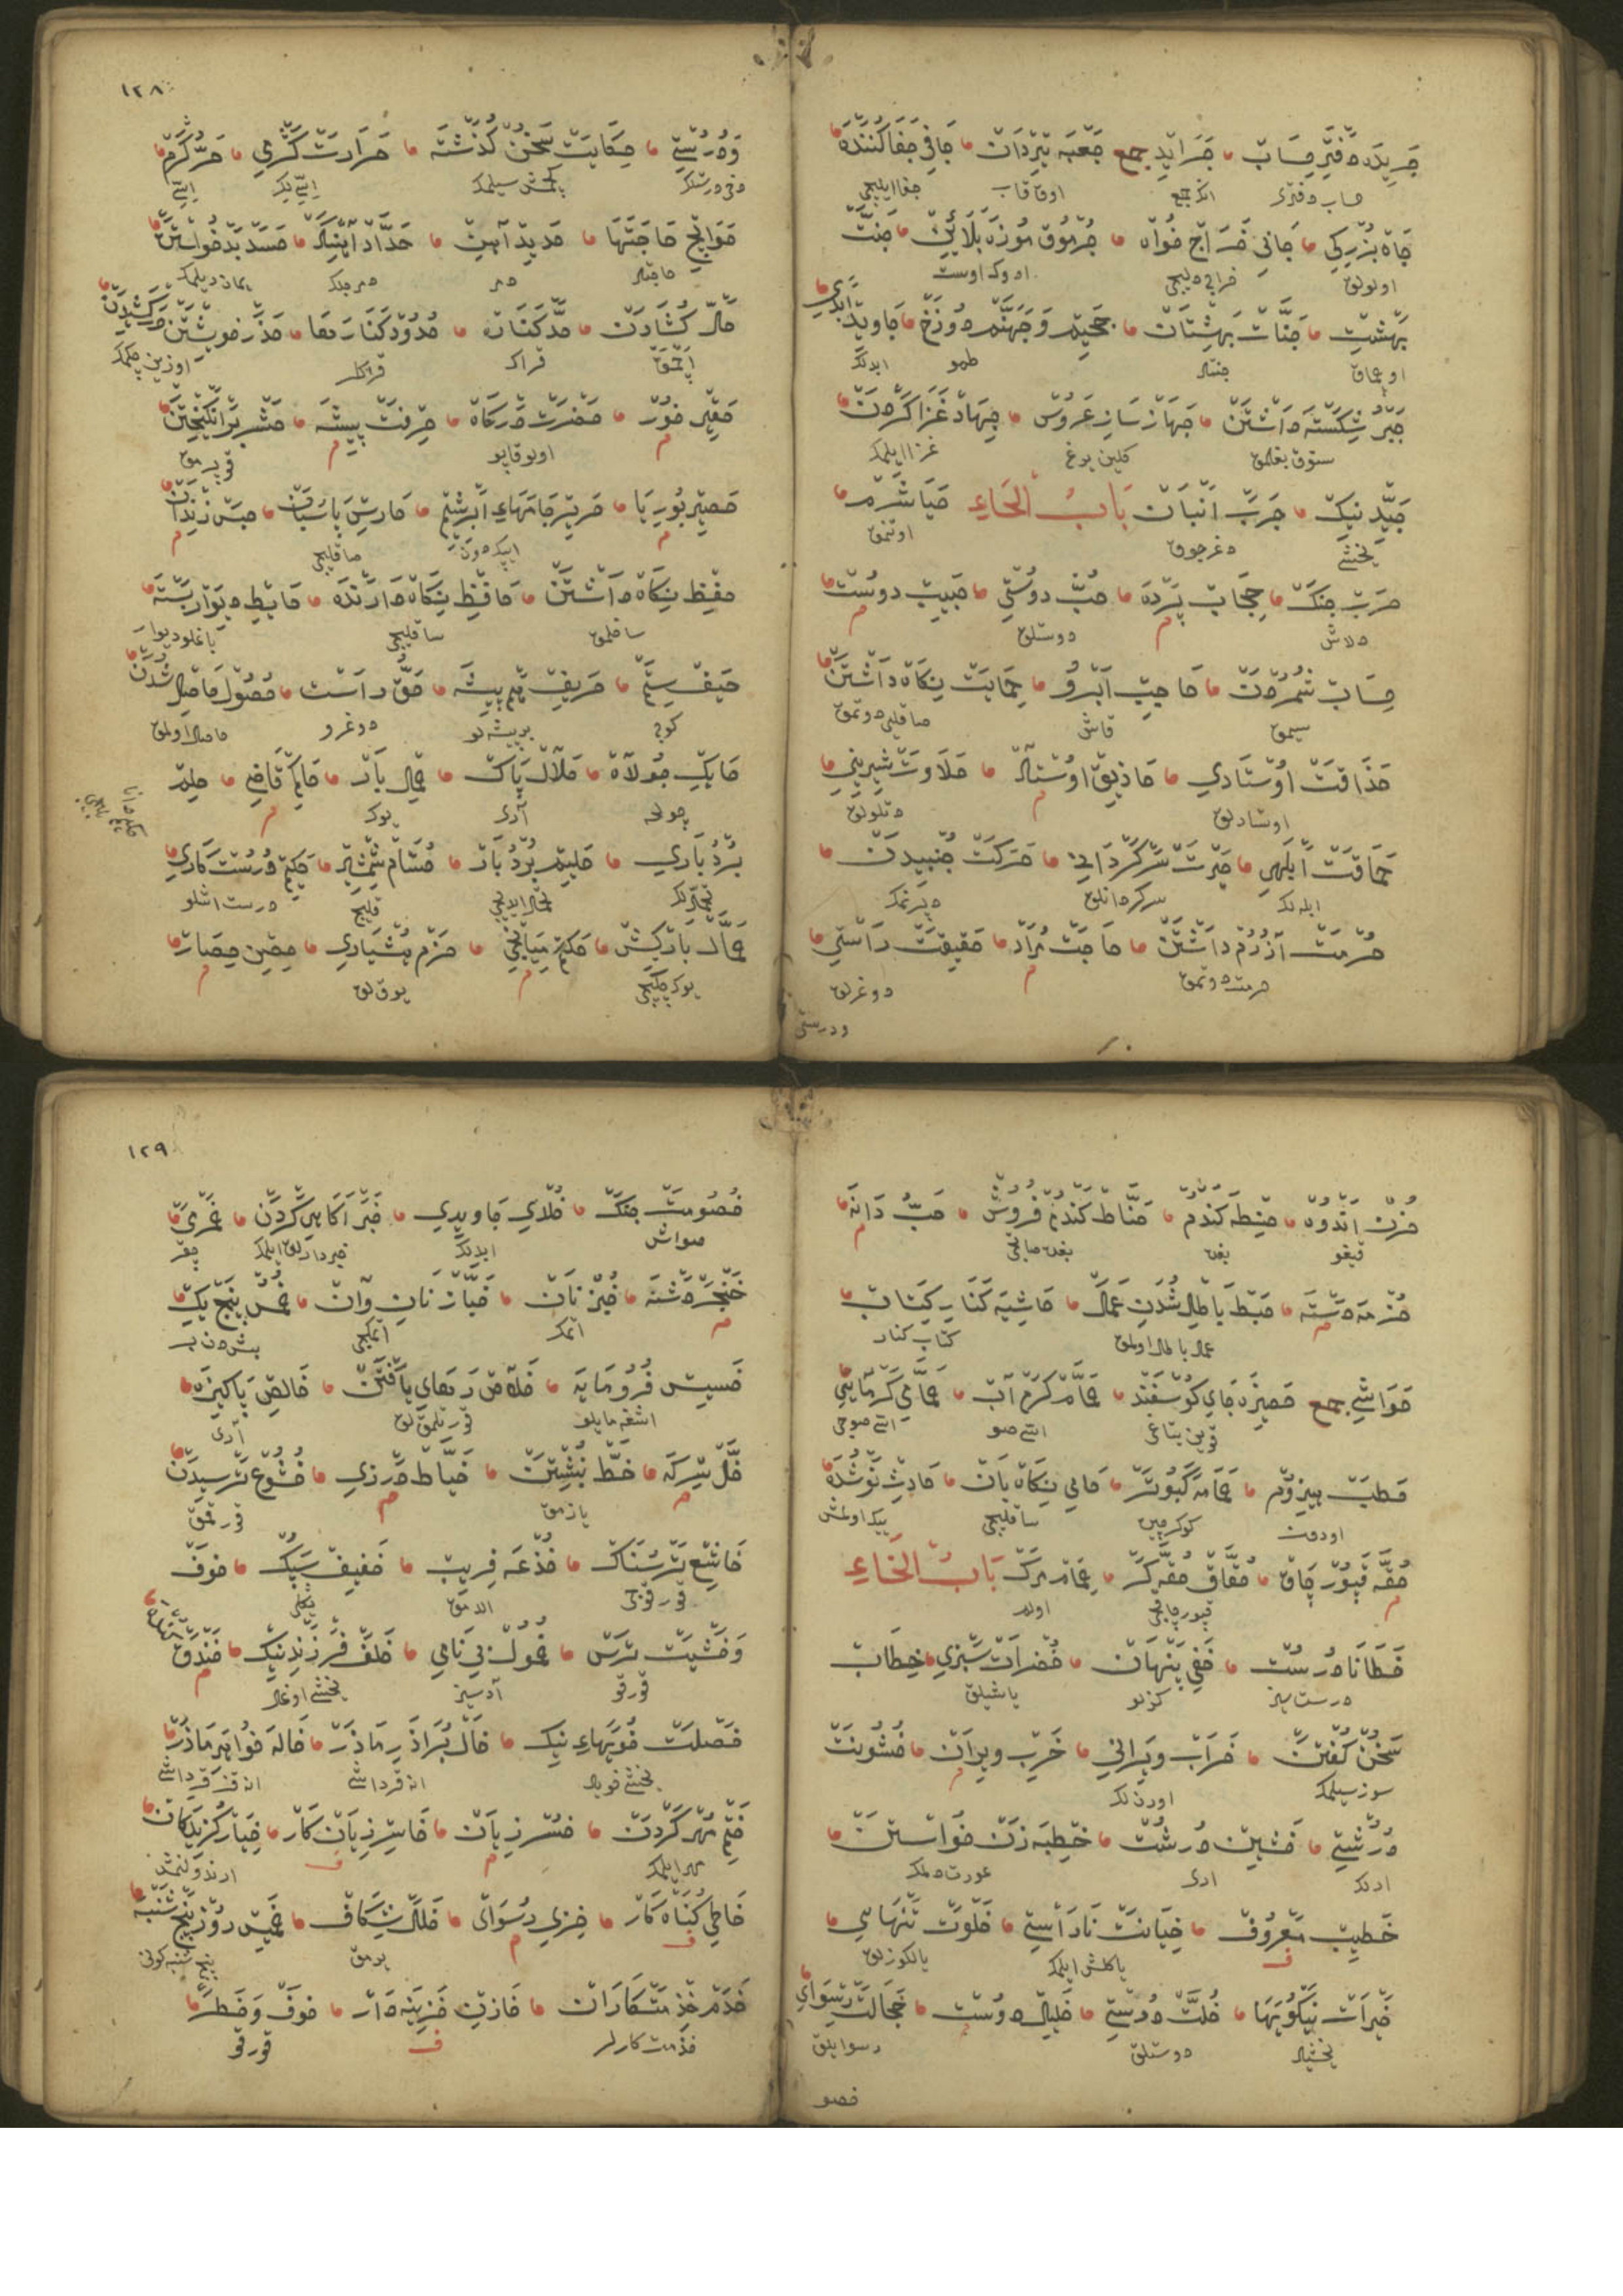 جریده دفتر حساب جراید جمع جعبه تیردان جافی جفا کننده
حساب دفتری اوق قاب جفا ایلیجی
جاه بزرکی جانی خراج خواه جرموق موزه بلائین جنت
اولولق
بهشت جنات بهشتان جحیم وجهنم دوزخ جاوید ابدی
اوچماق جنتلر طمو ابدلک
جبر شکسته داشتن جهاز ساز عروس جهاد غزا کردن
غزا ایلمک
جید نیک جرب انبان باب الحاء حیا شرم
یخشی دغرجوق اوتنمق
حرب جنک حجاب پرده حب دوستی حبیب دوست
دلاش م دوستلق م
حساب شمردن حاجب ابرو حمایت نکاه داشتن
سیمق قاش صاقلیو دوتمق
حذاقت اوستادی حاذق اوستاد حلاوت شیرینی
اوستادلق م دتلولق
حماقت ابلهی حیرت سرکردانی حرکت جنبیدن
ابله لک سرکردانلق دپرنمک
حرمت آزرم داشتن حاجت مراد حقیقت راستی
حرمت دوتمق م دوغرلق
ودرستی
١٢٨
ودرستی حکایت سخن کذشته حرارت کرمی حر کرم
کچمش سیلمک استی لک استی
حوایج حاجتها حدید آهن حداد آهنکر حسد بد خواستن
حاجتلر دمر دمرجلک یمان دیلمک
حل کشادن حد کناره حدود کنارها حذر خویشتن درکشیدن
قراک قراکلر اوزین چکمک
حقیر خورد حضرت درکاه حرفت پیشه حشر برانکیختن
م اولو قاپو م
حصیر بوریا حریر جامهای ابرشیم حارس پاسبان حبس زندان
م ایپک دون صاقلیجی م
حفظ نکاه داشتن حافظ نکاه دارنده حایط دیوار بسته
ساقلمق ساقلیجی باغلو دیوار
حیف ستم حریف هم پیشه حق راست حصول حاصل شدن
کوج بر پیشه لو دوغرو حاصل اولمق
حایک جولاه حلال پاک حمل بار حاکم قاضی حلم
چولحه آری یوک م
بردباری حلیم بردبار حسام شمشیر حکیم درست کاری
قلیج درست اشلو
حمال بارکش حکم میانجی حزم هشیاری حصین حصار
یوک چکیجی م یوقلق م
حزن اندوه حنطه کندم حناط کندم فروش حب دانه
قیغو بغدی بغدی صاتجی م
حزمه دسته حبط باطل شدن عمل حاشیه کنار کتاب
م عمل باطل اولمق کتاب کنار
حواشی جمع حصیره جای کوسفند حمام کرم آب حمامی کرمابی
قوین یتاغی استی صو استی صوجی
حطب هیزوم حمامه کبوتر حامی نکاه بان حادث نوشده
اودون کوکرجین ساقلیجی ییکی اولمش
حقه قبور چاق حقاق حقه کر حمام مرک باب الخاء
م قبور چاقجی اولم
خطا نادرست خفی پنهان خضرات سبزی خطاب
درست سیز کزلو یاشیلق
سخن کفتن خراب ویرانی خرب ویران خشونت
سوز سیلمک اورن لک م
درشتی خشین درشت خطبه زن خواستن
اری لک اری عورت دلمک
خطیب معروف خیانت ناراستی خلوت تنهایی
ف یاکلش ایلمک یالکوزلق
خیرات نیکوییها خلت دوستی خلیل دوست خجالت رسوای
یخشیلر دوستلق م رسوایلق
خصو
١٢٩
خصومت جنک خلای جاویدی خبر آکاهی کردن خمر می
صواش ابدلک خبردارلق ایلمک چقر
خنجر دشنه خبز نان خباز نان وان خمس پنج یک
م اتمک اتمکجی بشدن بر
خسیس فرومایه خلاص رهای یافتن خالص پاکیزه
قورتلمق لق آری
خل سرکه خط نبشتن خیاط درزی خشوع ترسیدن
م یازمق م قورقمق
خاشع ترسناک خدعه فریب خفیف سبک خوف
قورقوجی الدامق یکل
وخشیت ترس خمول بی نامی خلف فرزند نیک خندق
قورقو آدسیز یخشی اوغل م
خصلت خویهای نیک خال برادر مادر خاله خواهر مادر
یخشی خویلر انا قرداشی انا قز قرداشی
ختم مهر کردن خسر زیان خاسر زیان کار خیار کزیدکان
مهر ایلمک م ف
خاطی کناه کار خزی رسوای خلل شکاف خمیس روز پنج شنبه
ف م یرمق پنج شنبه کونی
خدم خذمتکاران خازن خزینه دار خوف وخطر
خذمت کارلر ف قورقو